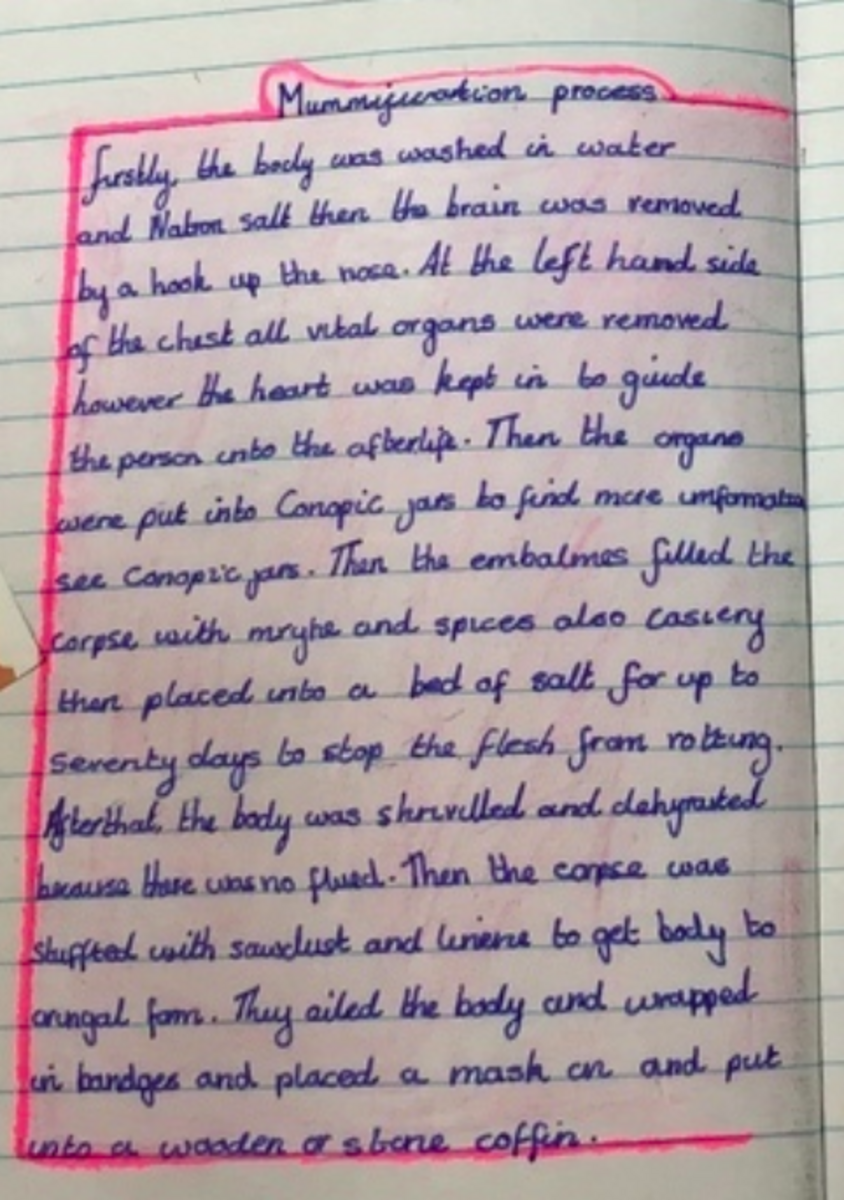 Mummification process
firstly, the body was washed in water
and Natron salt then the brain was removed
by a hook up the nose. At the left hand side
of the chest all vital organs were removed
however the heart was kept in to guide
the person into the afterlife. Then the organs
were put into Conopic jars to find more imformation
see Conopic jars. Then the embalmes filled the
corpse with mryhe and spices also casiery
then placed into a bed of salt for up to
seventy days to stop the flesh from rotting.
After that, the body was shrivilled and dehyrated
because there was no flued. Then the corpse was
stuffted with sawdust and liniene to get body to
oringal form. They oiled the body and wrapped
in bandges and placed a mask on and put
into a wooden or stone coffin.